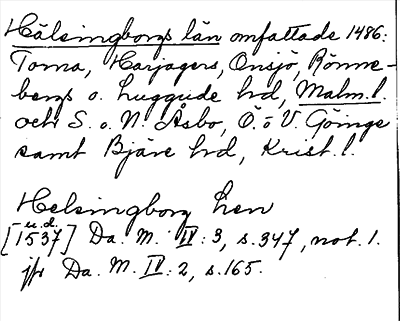 Hälsingborgs län omfattade 1486:
Torna, Harjagers, Onsjö, Rönne-
bergs o. Luggude hrd, Malm.l.
och S. o. N. Åsbo, Ö. o V. Göinge
samt Bjäre hrd, Krist.l.
Helsingborg Len
u.d.
[1537] Da. M. IV:3, s.347, not.1.
jfr Da. M. IV:2, s.165.